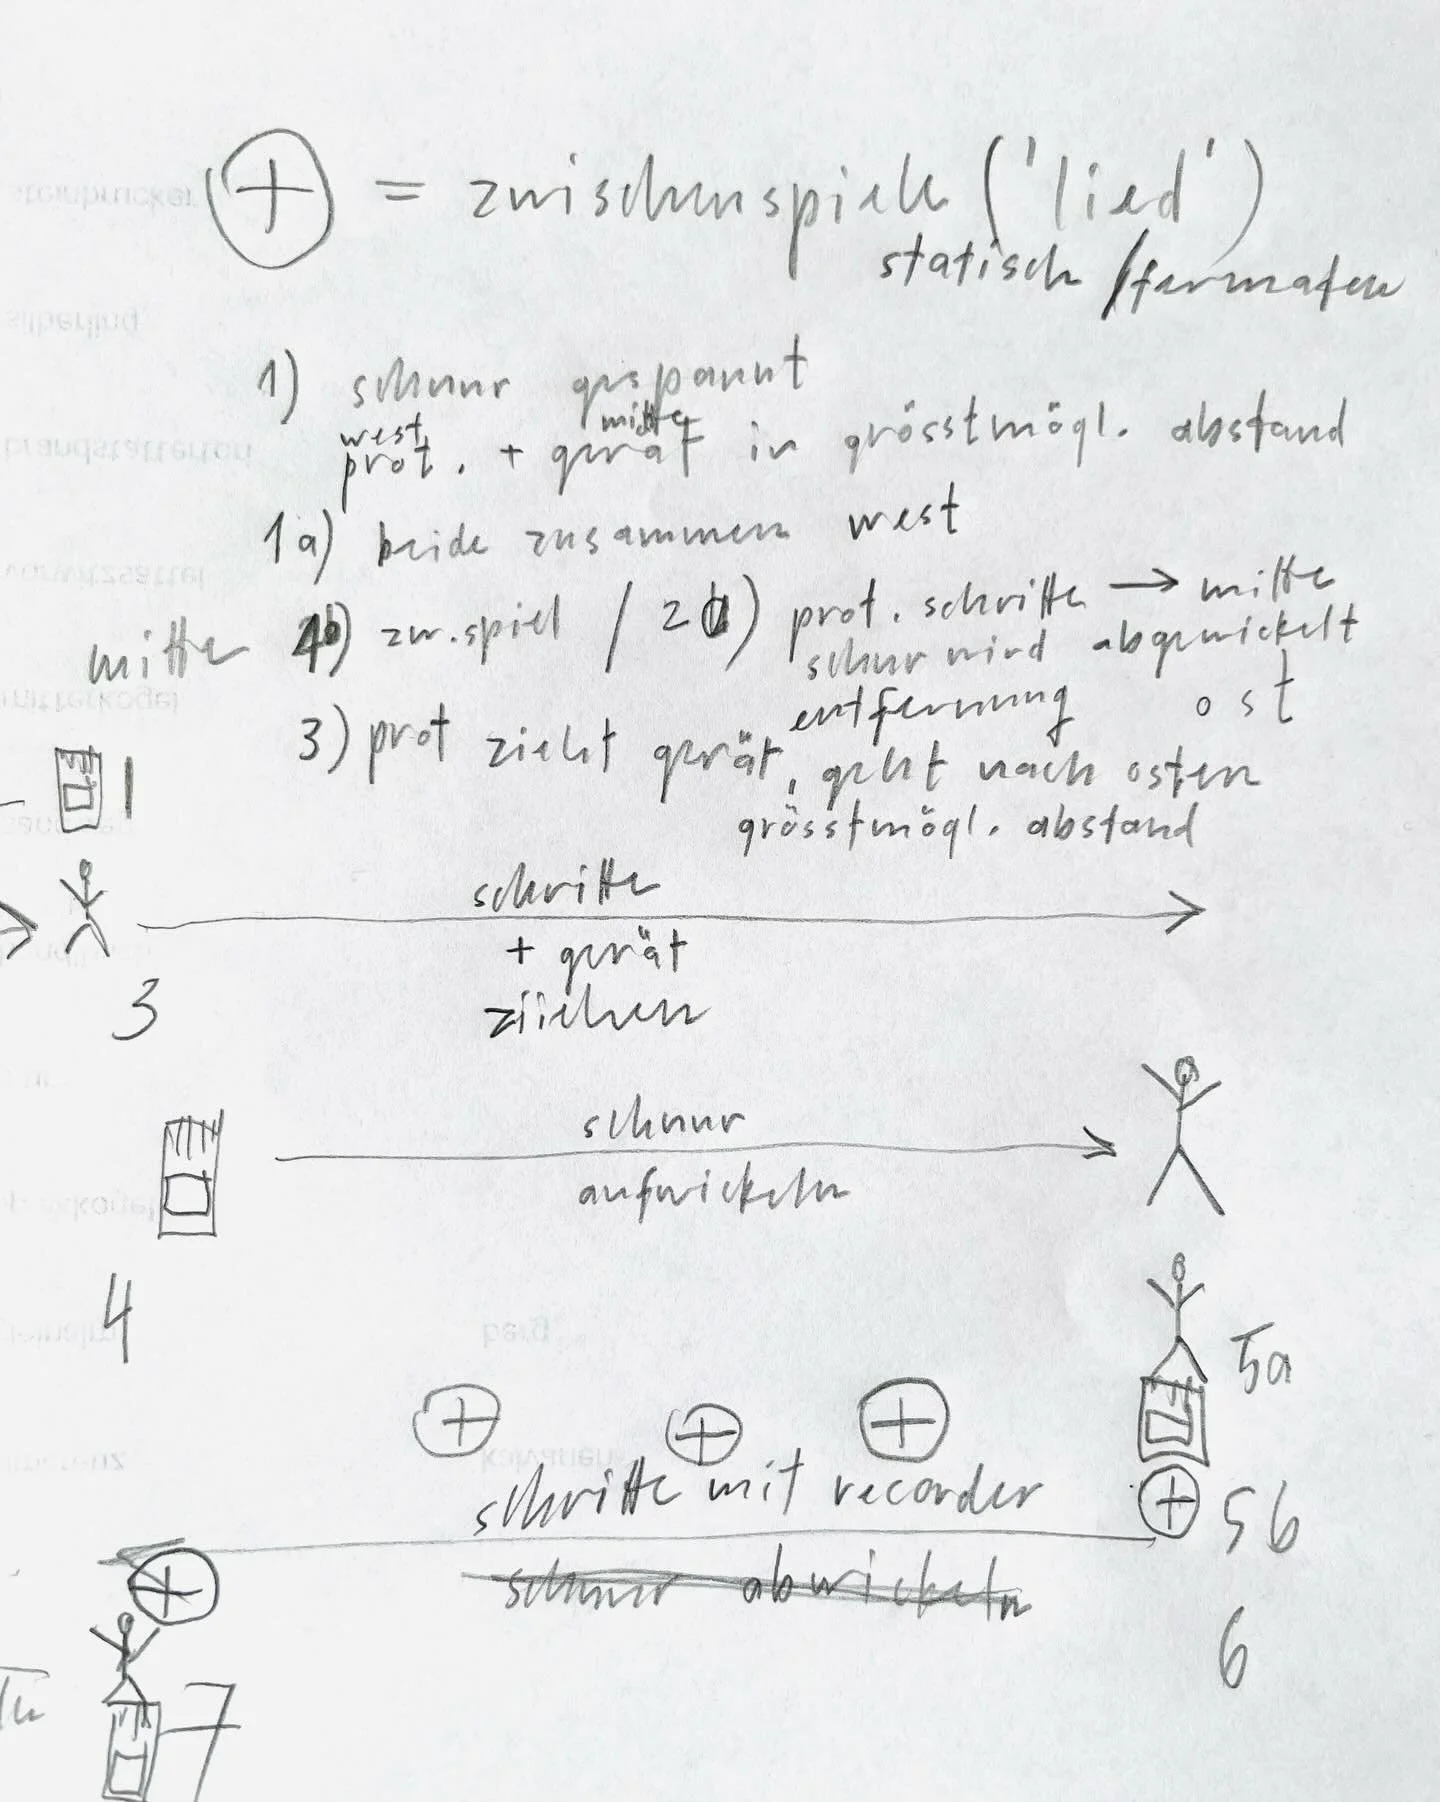 + = zwischenspiele ('lied')
statisch / fermaten
1) schnur gespannt
west mitte
prot. + gerät in grösstmögl. abstand
1a) beide zusammen west
mitte zw.spiel / 2 ) prot. schritte → mitte
schnur wird abgewickelt
entfernung ost
3) prot zieht gerät, geht nach osten
grösstmögl. abstand
1
schritte
+ gerät
3
ziiehen
schnur
aufwickeln
4
5a
schritte mit recorder
5b
schnur abwickeln
6
7
steinbrucker
silberling
brandstattertörl
vorwitzsattel
mitterkogel
berg
kalvarien